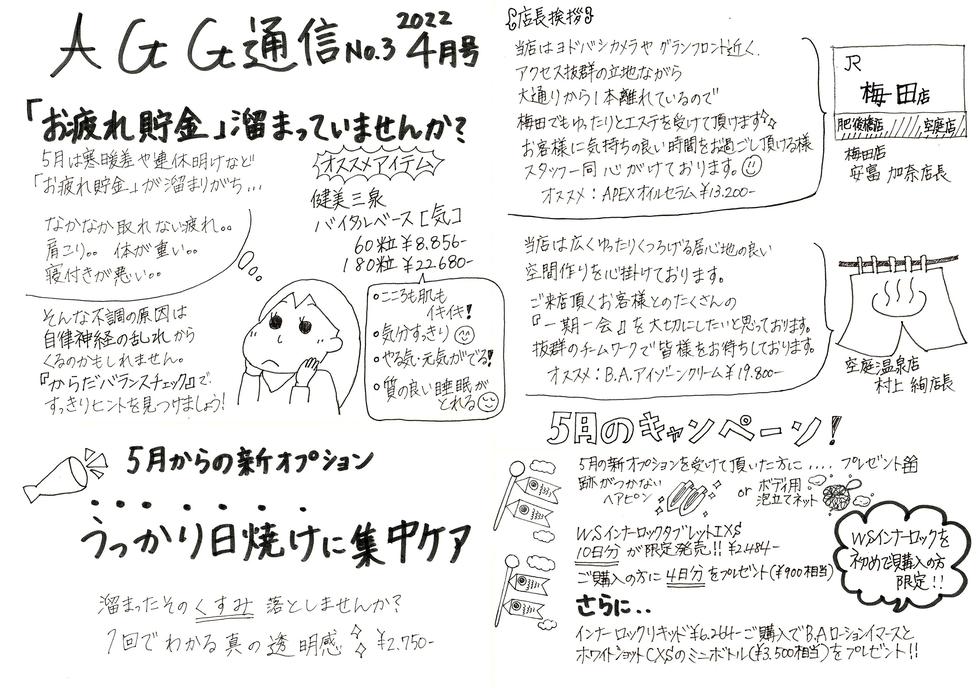 AGG通信 No.3 2022 4月号
「お疲れ貯金」溜まっていませんか?
5月は寒暖差や連休明けなど
「お疲れ貯金」が溜まりがち...
なかなか取れない疲れ。。
肩こり。。 体が重い。。
寝付きが悪い。。
そんな不調の原因は
自律神経の乱れから
くるのかもしれません。
『からだバランスチェック』で
すっきりヒントを見つけましょう!
オススメアイテム
健美三泉
バイタルベース[気]
60粒 ¥8.856-
180粒 ¥22680-
•こころも肌も
イキイキ!
•気分すっきり
•やる気・元気がでる!
•質の良い睡眠が
とれる
5月からの新オプション
うっかり日焼けに集中ケア
溜まったそのくすみ 落としませんか?
1回でわかる真の透明感 ¥2.750-
店長挨拶
当店はヨドバシカメラや グランフロント近く、
アクセス抜群の立地ながら
大通りから1本離れているので
梅田でもゆったりとエステを受けて頂けます
お客様に気持ちの良い時間をお過ごし頂ける様
スタッフ一同心がけております。
オススメ:APEXオイルセラム ¥13.200-
JR
梅田店
肥後橋店 空庭店
梅田店
安富 加奈店長
当店は広くゆったりくつろげる居心地の良い
空間作りを心掛けております。
ご来店頂くお客様とのたくさんの
『一期一会』を大切にしたいと思っております。
抜群のチームワークで皆様をお待ちしております。
オススメ:B.A.アイゾーンクリーム ¥19.800-
空庭温泉店
村上 絢店長
5月のキャンペーン!
5月の新オプションを受けて頂いた方に.... プレゼント
跡がつかない
ヘアピン
or ボディ用
泡立てネット
WSインナーロックタブレットIXS
10日分が限定発売!! ¥2.484-
ご購入の方に4日分をプレゼント(¥900相当)
WSインナーロックを
初めてご購入の方
限定!!
さらに..
インナーロックリキッド¥6.264-ご購入でB.Aローションイマースと
ホワイトショットCXSのミニボトル(¥3.500相当)をプレゼント!!